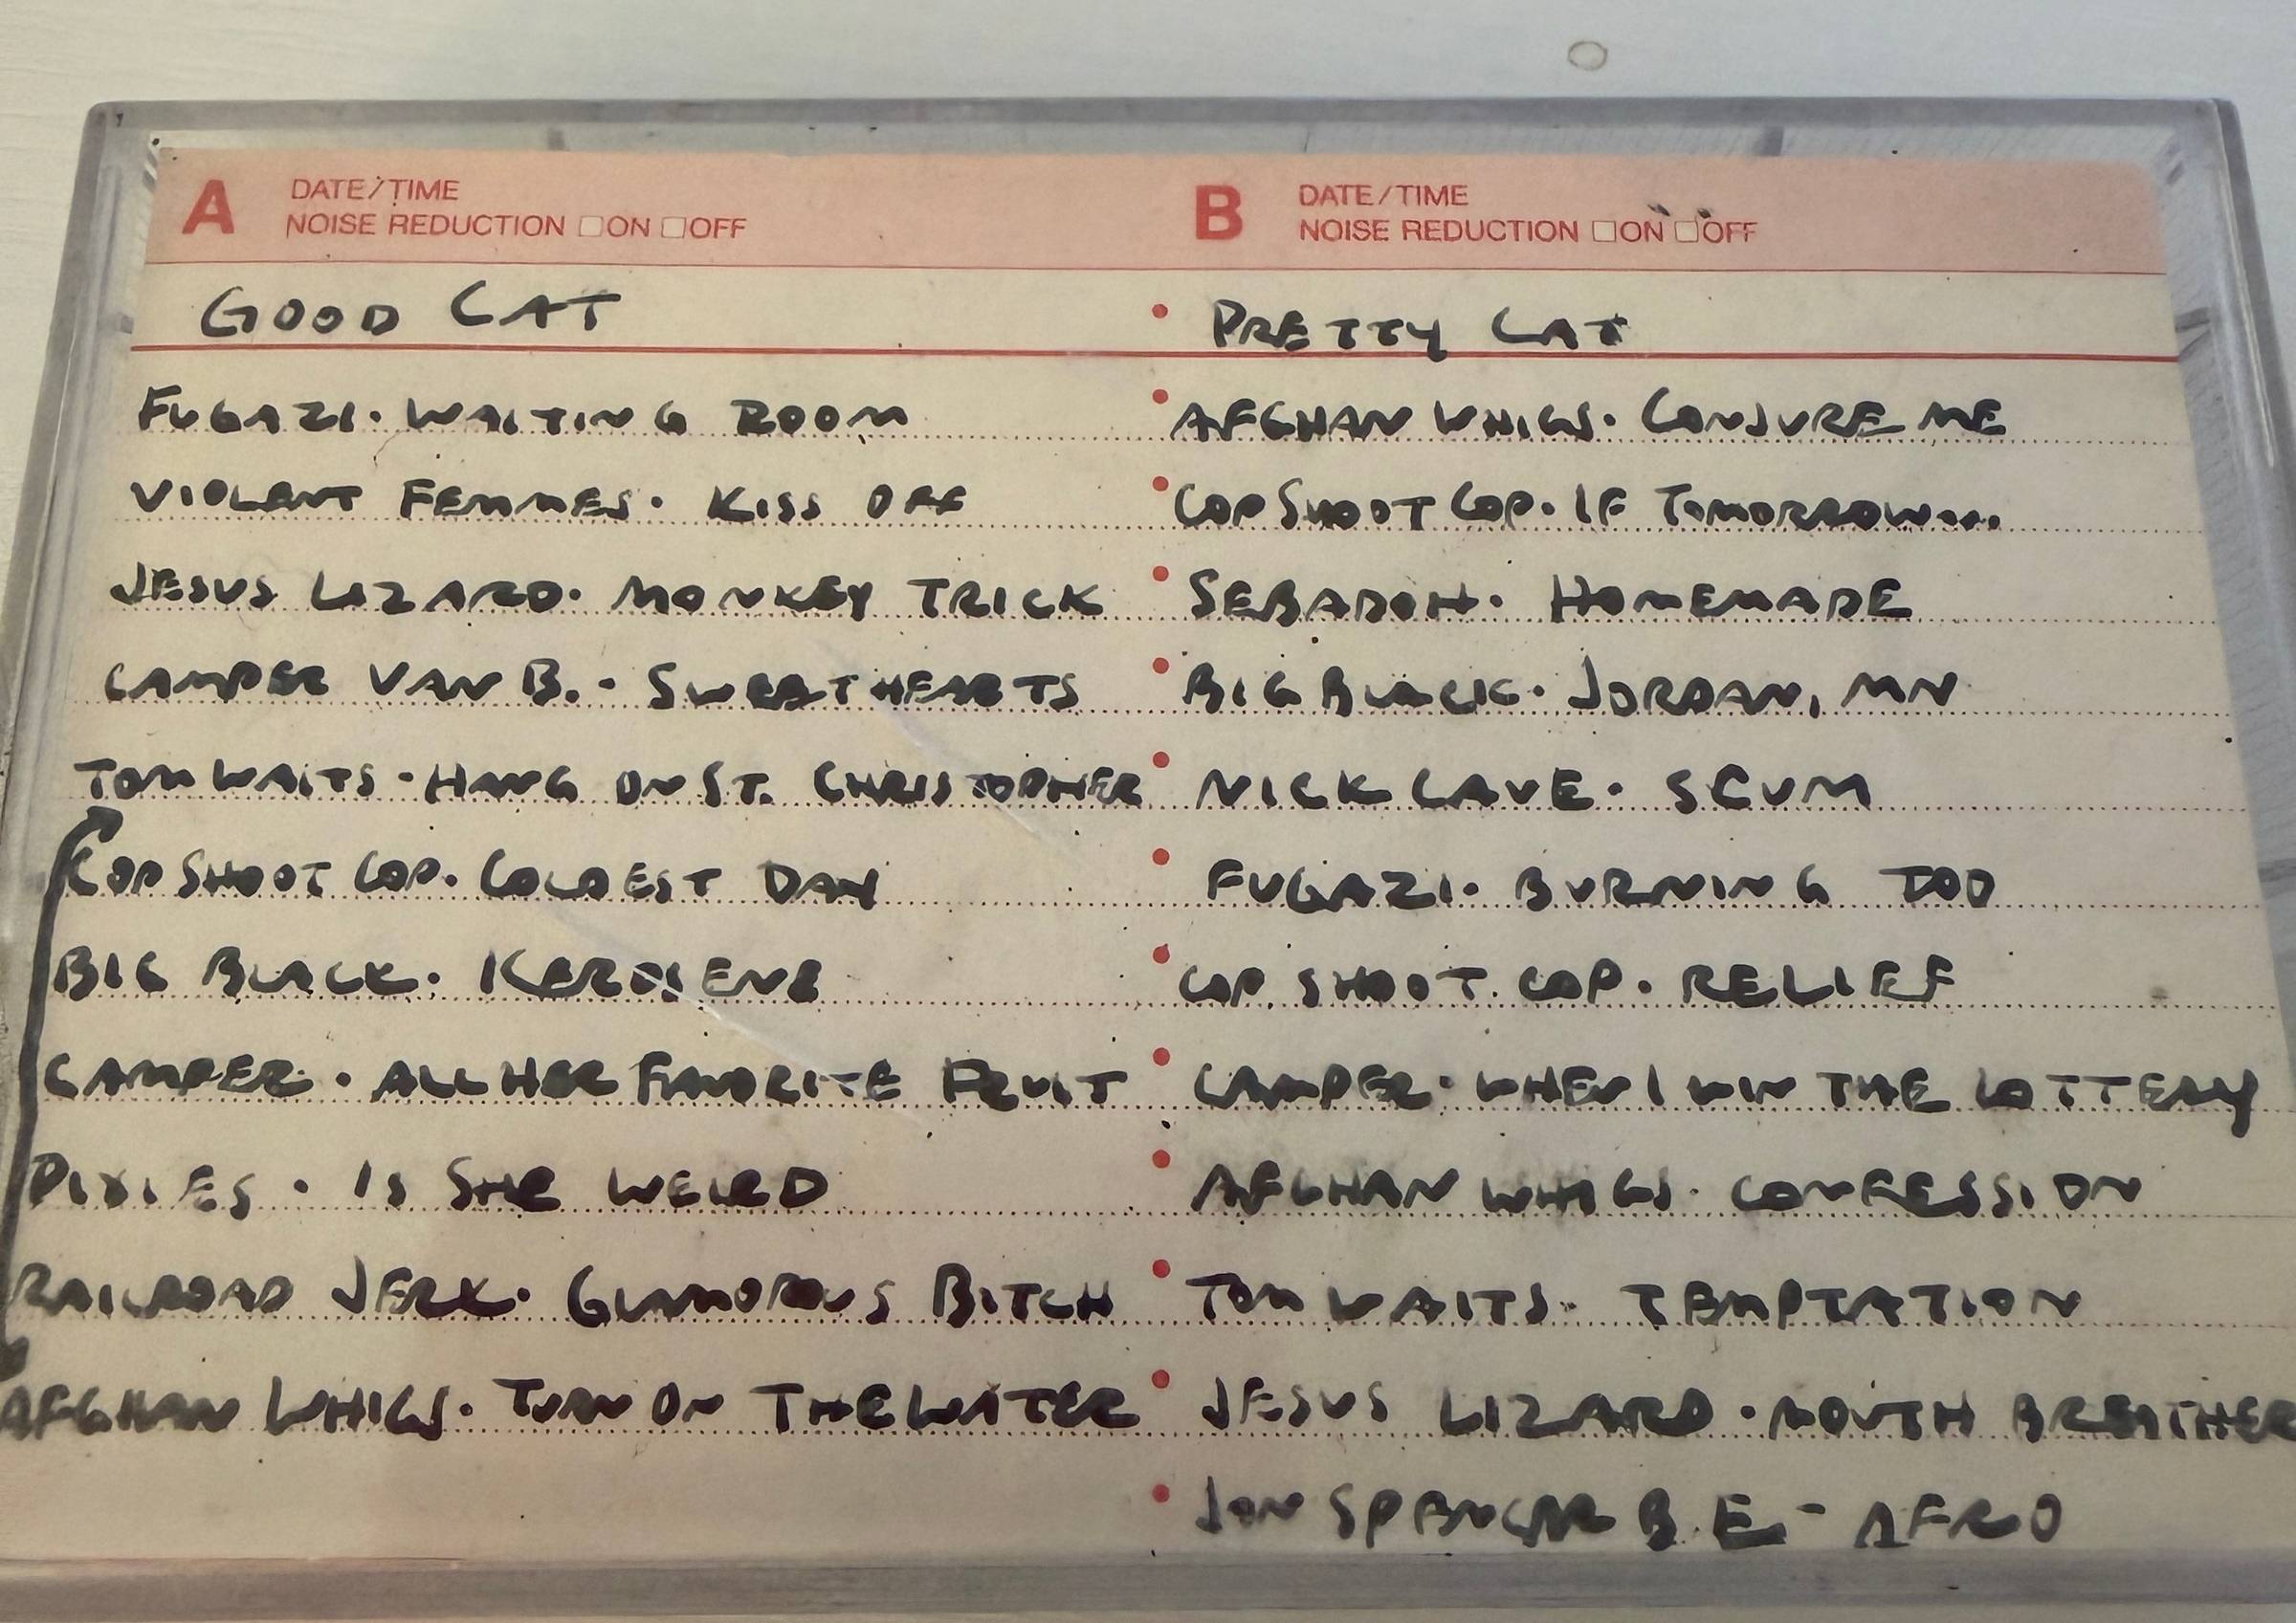 A DATE/TIME
NOISE REDUCTION ON OFF
GOOD CAT
FUGAZI · WAITING ROOM
VIOLENT FEMMES · KISS OFF
JESUS LIZARD · MONKEY TRICK
CAMPER VAN B. - SWEETHEARTS
TOM WAITS · HANG ON ST. CHRISTOPHER
COP SHOOT COP. COLDEST DAY
BIG BLACK. KEROSENE
CAMPER · ALL HER FAVORITE FRUIT
PIXIES · IS SHE WEIRD
RAILROAD JERK · GLAMOROUS BITCH
AFGHAN WHIGS · TURN ON THE WATER
B DATE/TIME
NOISE REDUCTION ON OFF
PRETTY CAT
AFGHAN WHIGS · CONJURE ME
COP SHOOT COP. IF TOMORROW....
SEBADOH · HOMEMADE
BIG BLACK · JORDAN, MN
NICK CAVE · SCUM
FUGAZI · BURNING TOO
COP SHOOT COP · RELIEF
CAMPER · WHEN I WIN THE LOTTERY
AFGHAN WHIGS · CONFESSION
TOM WAITS · TEMPTATION
JESUS LIZARD · MOUTH BREATHER
JON SPENCER B. E. - AFRO